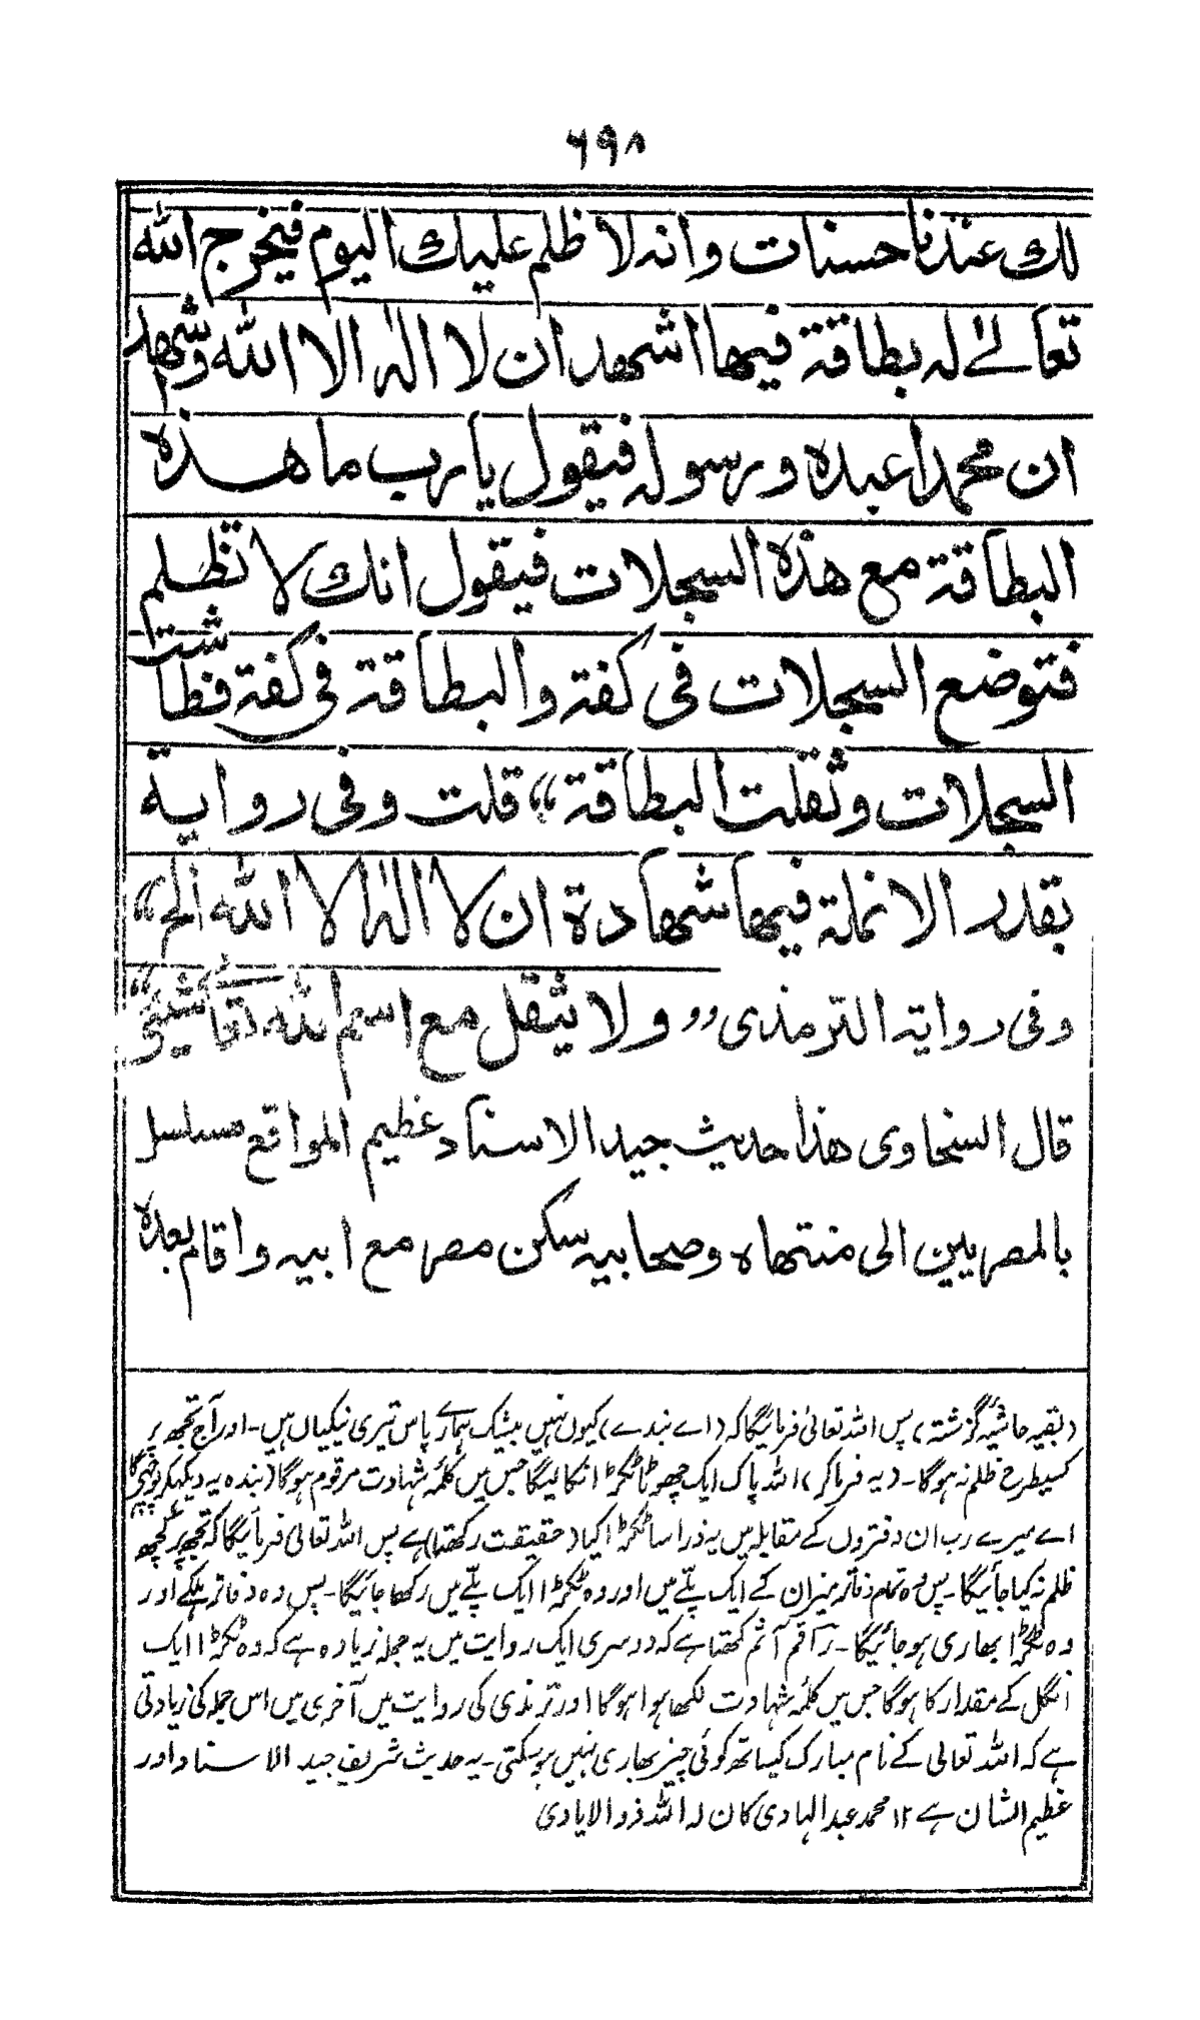 ۶۹۸
لك عندنا حسنات وانه لا ظلم عليك اليوم فيخرج الله
تعالےٰ له بطاقة فيها اشهد ان لا اله الا الله واشهد
ان محمدا عبده ورسوله فيقول يا رب ما هذه
البطاقة مع هذه السجلات فيقول انك لا تظلم
فتوضع السجلات فی كفة والبطاقة فی كفة فطاشت
السجلات وثقلت البطاقة» قلت وفی رواية
بقدر الانملة فيها شهادة ان لا اله الا الله الخ»
وفی رواية الترمذی «ولا يثقل مع اسم الله تعالیٰ شیئ»
قال السخاوی هذا حديث جيد الاسناد عظيم المواقع مسلسل
بالمصريين الی منتهاه وصحابيه سكن مصر مع ابيه واقام بعده
(بقیہ حاشیہ گزشتہ) پس اللہ تعالیٰ فرمائیگا کہ (اے بندے) کیوں نہیں بیشک ہمارے پاس تیری نیکیاں ہیں۔ اور آج تجھ پر
کسیطرح ظلم نہ ہوگا۔ (یہ فرما کر) اللہ پاک ایک چھوٹا ٹکڑا نکالیگا جس میں کلمۂ شہادت مرقوم ہوگا (بندہ یہ دیکھکر پوچھیگا
اے میرے رب ان دفتروں کے مقابلہ میں یہ ذرا سا ٹکڑا کیا (حقیقت رکھتا) ہے پس اللہ تعالی فرمائیگا کہ تجھ پر کچھ
ظلم نہ کیا جائیگا۔ پس وہ تمام دفاتر میزان کے ایک پلّے میں اور وہ ٹکڑا ایک پلّے میں رکھا جائیگا۔ پس وہ دفاتر ہلکے اور
وہ ٹکڑا بھاری ہو جائیگا۔ راقم آثم کہتا ہے کہ دوسری ایک روایت میں یہ جملہ زیادہ ہے کہ وہ ٹکڑا ایک
انگل کے مقدار کا ہوگا جس میں کلمۂ شہادت لکھا ہوا ہوگا اور ترمذی کی روایت میں آخری میں اس جملہ کی زیادتی
ہے کہ اللہ تعالی کے نام مبارک کیساتھ کوئی چیز بھاری نہیں ہو سکتی۔ یہ حدیث شریف جید الاسناد اور
عظیم الشان ہے ۱۲ محمد عبد الہادی کان لہ اللہ ذو الایادی